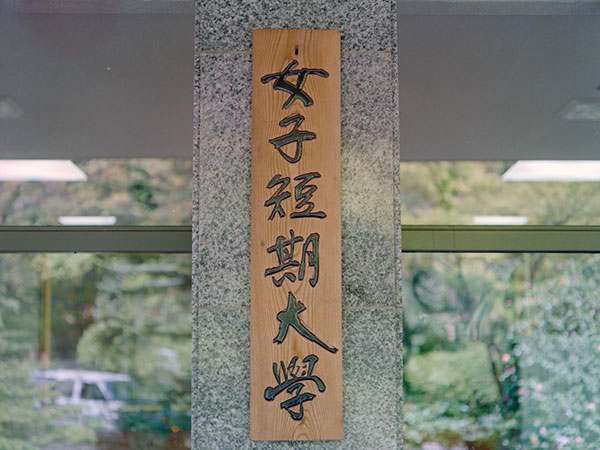 女子短期大學